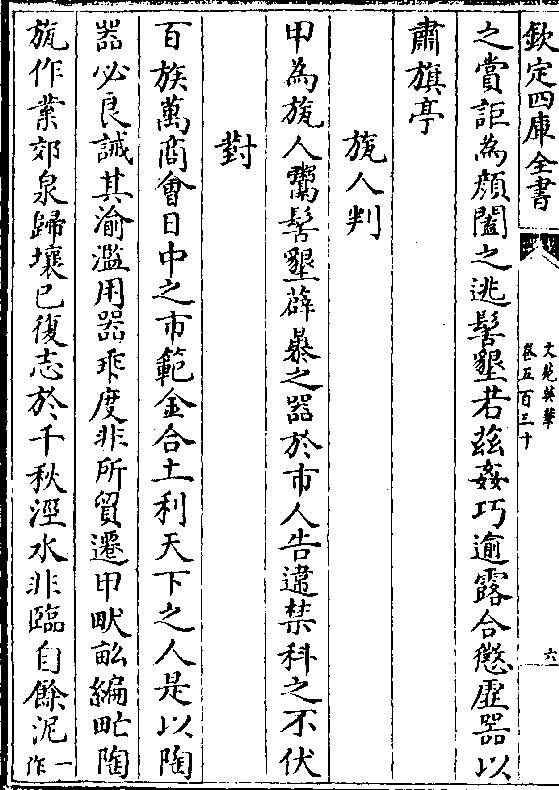 欽定四庫全書
文苑英華
卷五百三十
六
之賞詎為顔闔之逃髻墾若兹姦巧逾露合懲虛器以
肅旗亭
瓬人判
甲為瓬人鬻髻墾薜暴之器於市人告違禁科之不伏
對
百族萬商會日中之市範金合土利天下之人是以陶
器必良誡其渝濫用器乖度非所貿遷甲畎畝編甿陶
瓬作業郊泉歸壤已復志於千秋涇水非臨自餘泥一作